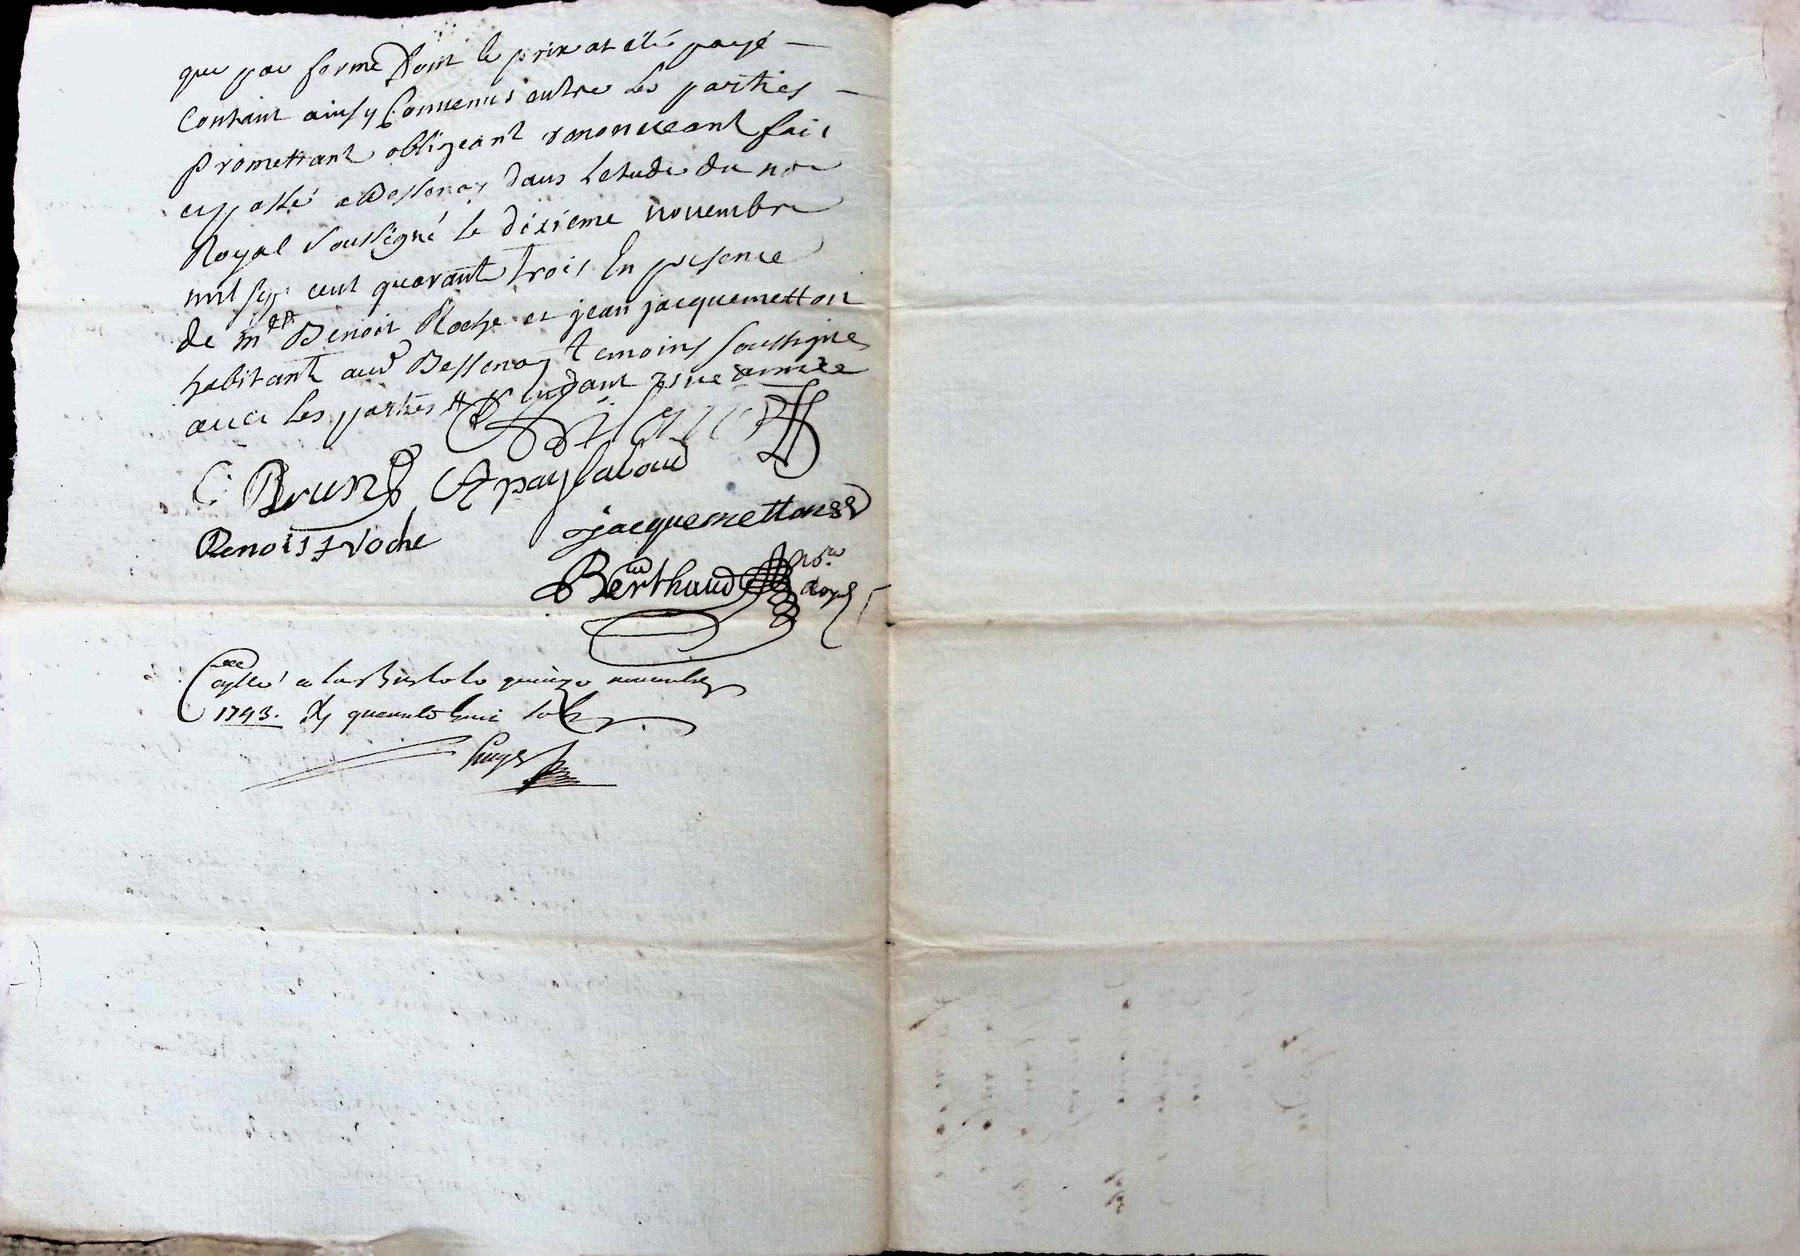 que par forme Dont le prix at eté payé
Contant ainsy Convenus entre les parties
promettant obligeant renonceant fait
et passé a Bessenay dans letude du nore
Royal soussigné le dixieme novembre
mil sept cent quarante trois En presence
de mre Benoit Roche et jean jacquemetton
habitants aud Bessenay temoins soussignes
avec les parties
C Brun
Benoist roche
jacquemetton
Berthaud nore
Royal
a la Bresle le quinze novembre
1743. quarante huit sols